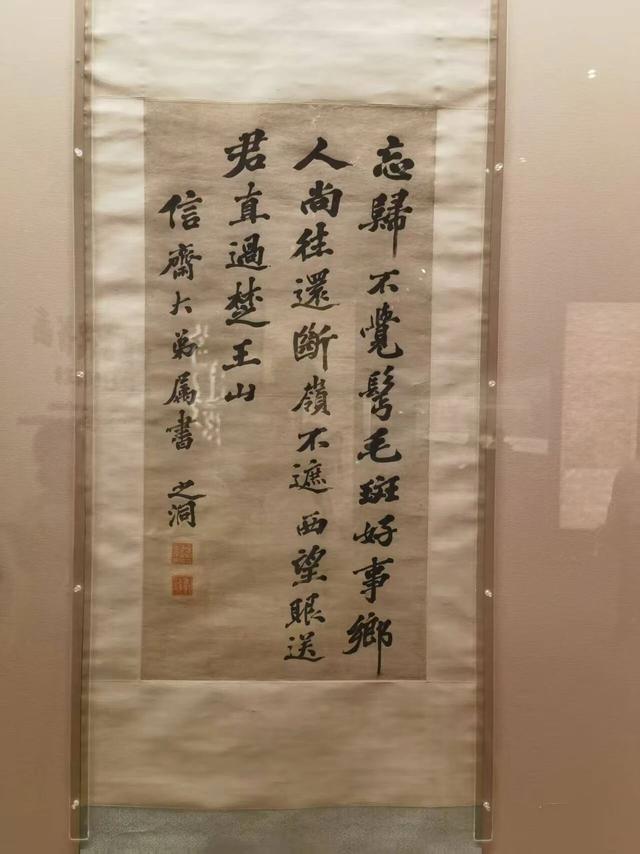 忘歸不覺鬢毛斑好事鄉
人尚往還斷嶺不遮西望眼送
君直過楚王山
信齋大弟屬書 之洞